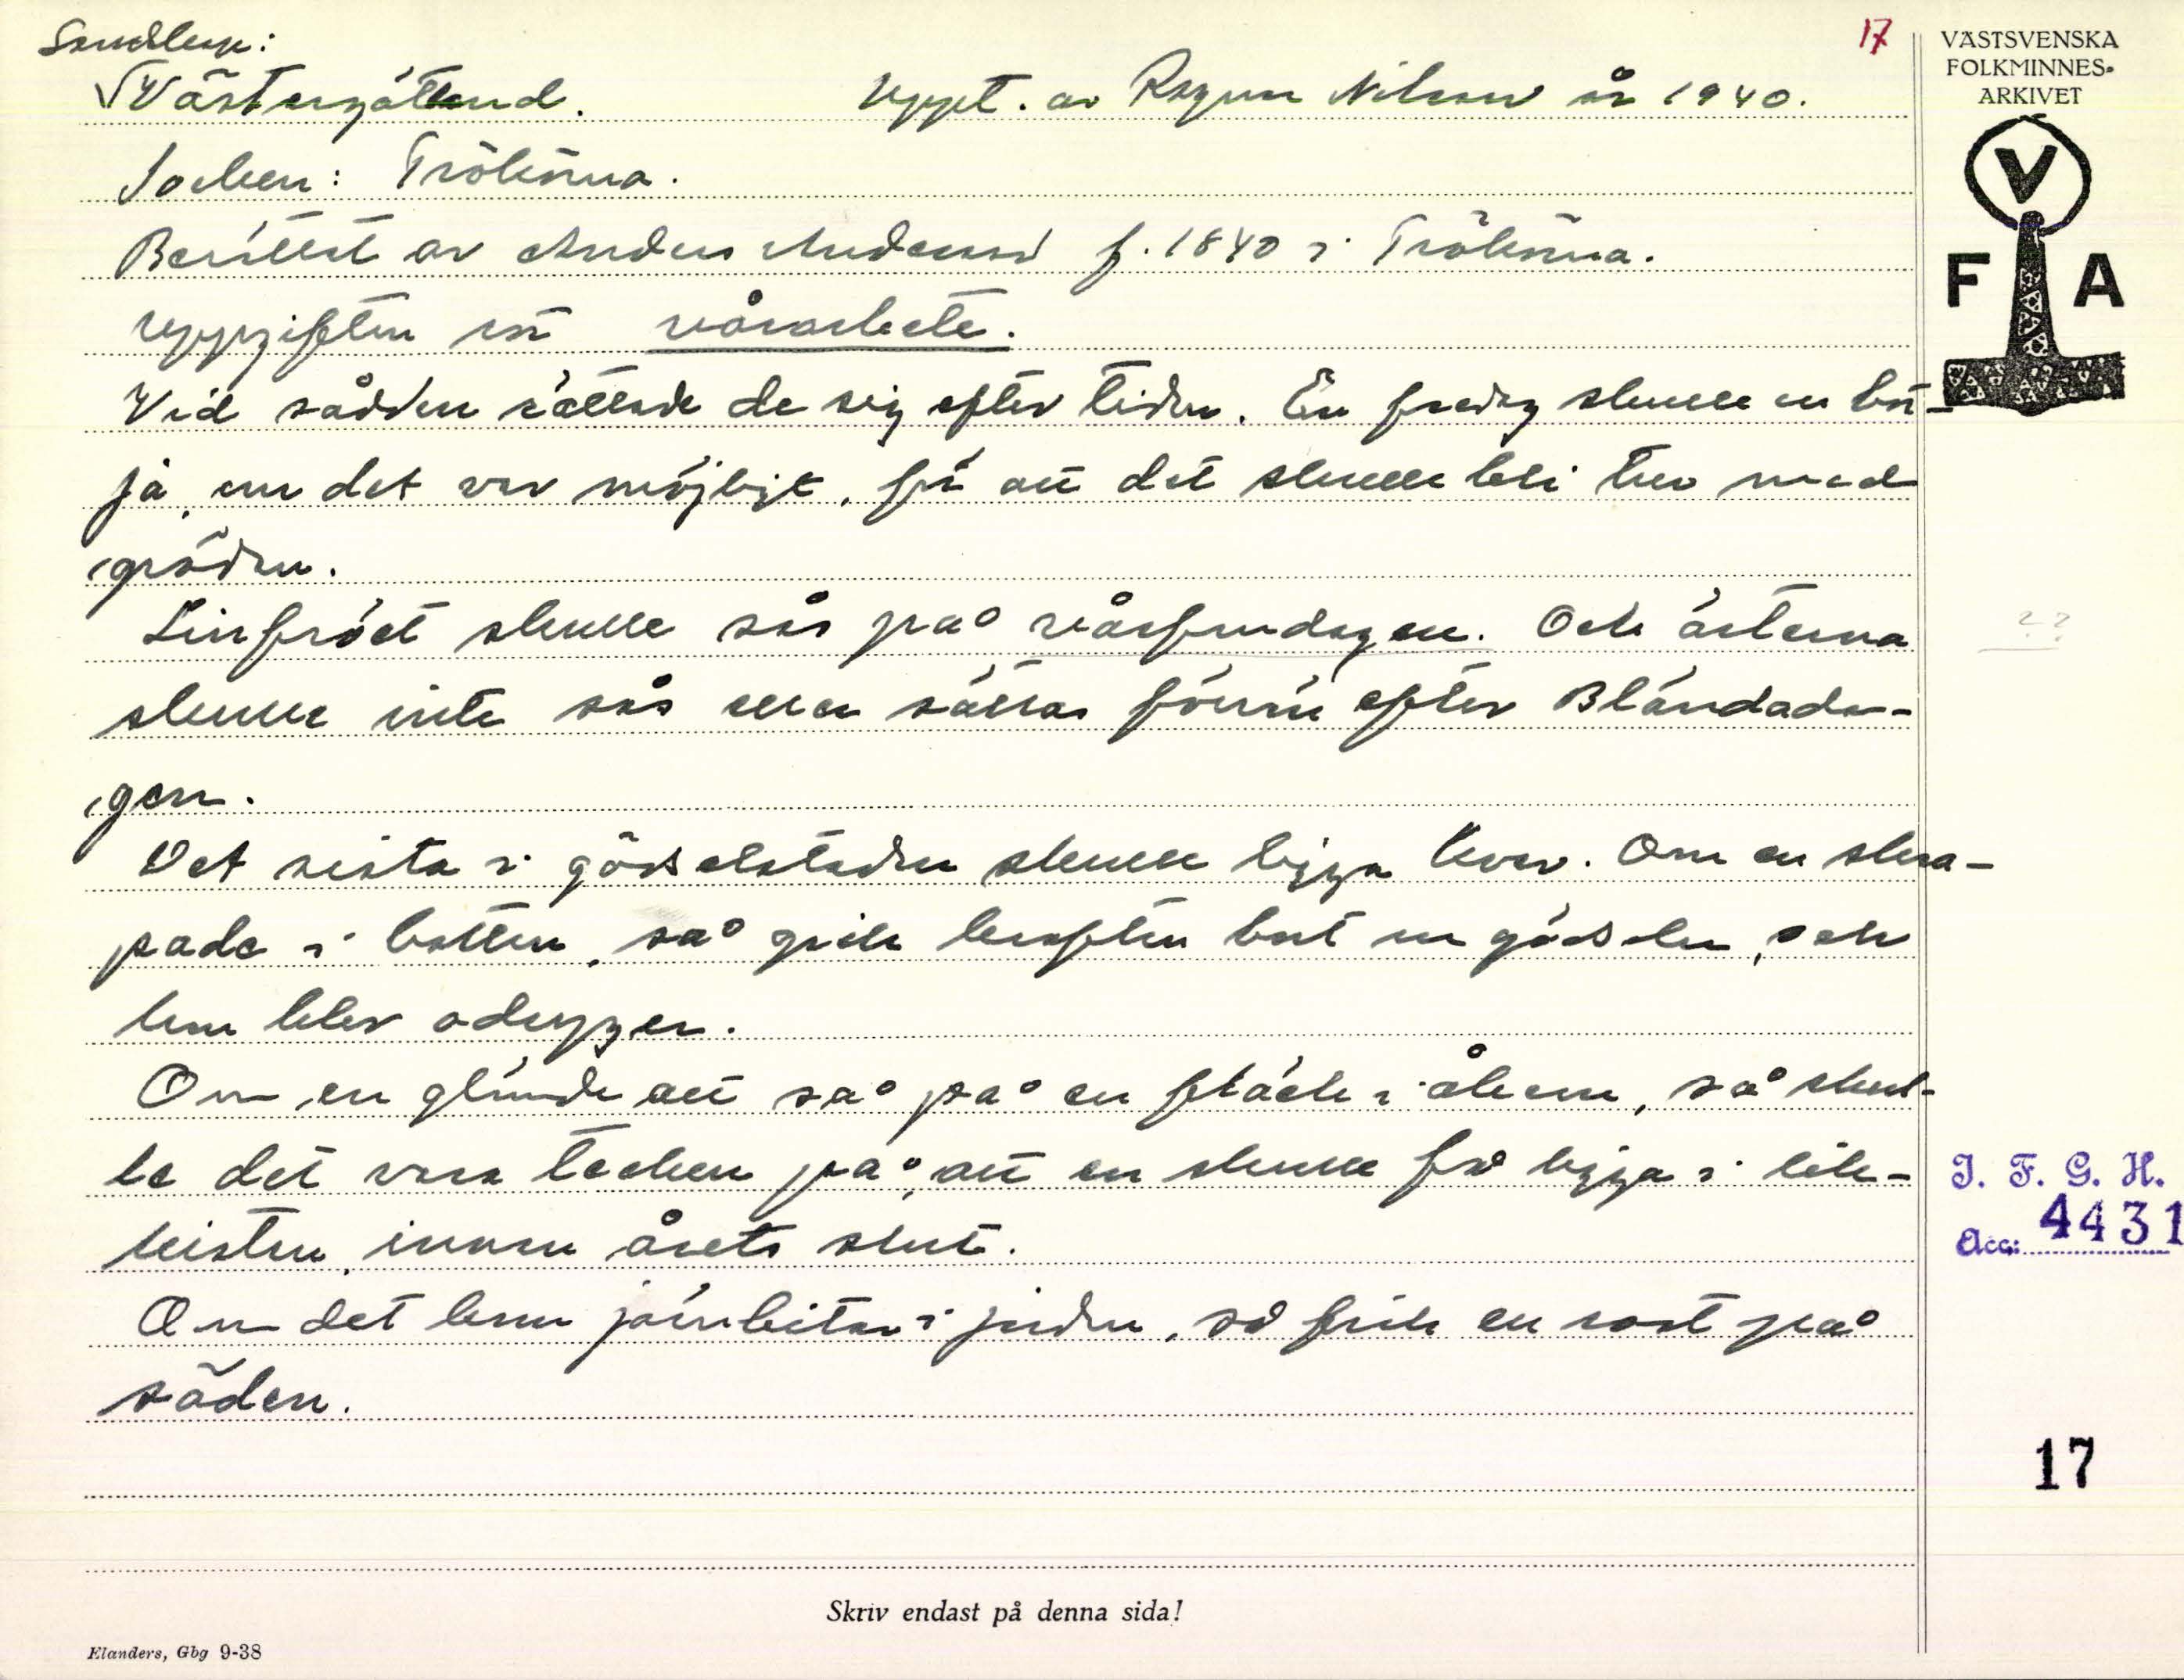 17
VÄSTSVENSKA
FOLKMINNES-
ARKIVET
V
F A
Landskap:
Västergötland. Uppt. av Ragnar Nilsson år 1940.
Socken: Trökörna.
Berättat av Anders Andersson f. 1840 i Trökörna.
Uppgiften rör vårarbete.
Vid sådden rättade de sig efter tiden. En fredag skulle en bör-
ja, om det var möjligt, för att det skulle bli tur med
grödan.
Linfröet skulle sås på vårfrudagen. Och ärterna
skulle inte sås eller sättas förrän efter Blåndada-
gen.
??
Det sista i gödselstaden skulle ligga kvar. Om en skra-
pade i botten, så gick kraften bort ur gödseln, och
den blev odryger.
Om en glömde att så på en fläck i åkern, så skul-
le det vara tecken på, att en skulle få ligga i lik-
kistan, innan årets slut.
Om det kom järnbitar i jorden, så fick en rost på
säden.
I. F. G. H.
Acc: 4431
17
Skriv endast på denna sida!
Elanders, Gbg 9-38